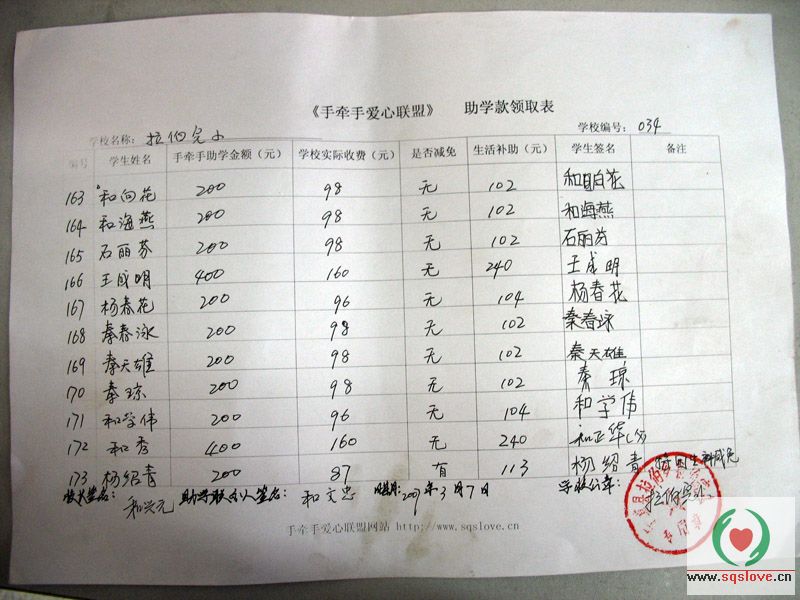 《手牵手爱心联盟》 助学款领取表
学校名称: 拉伯完小 学校编号: 034
编号 学生姓名 手牵手助学金额（元） 学校实际收费（元） 是否减免 生活补助（元） 学生签名 备注
163 和向花 200 98 无 102
164 和海燕 200 98 无 102 和海燕
165 石丽芬 200 98 无 102 石丽芬
166 王成明 400 160 无 240 王成明
167 杨春花 200 96 无 104 杨春花
168 秦春泳 200 98 无 102 秦春咏
169 秦天雄 200 98 无 102 秦天雄
170 秦琼 200 98 无 102 秦琼
171 和学伟 200 96 无 104 和学伟
172 和秀 400 160 无 240 和正华
173 杨绍青 200 87 有 113 杨绍青 特困生补减免
校长签名: 和兴元 助学联系人签名: 和文忠 日期: 2007年3月7日 学校公章: 拉伯完小
手牵手爱心联盟网站 http://www.sqslove.cn
www.sqslove.cn